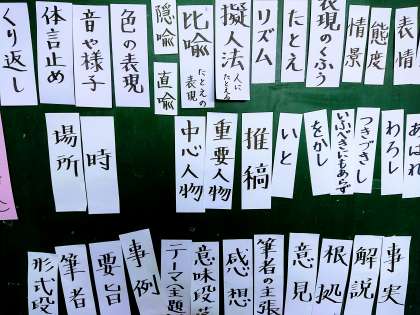 表情
態度
情景
表現のくふう
たとえ
リズム
擬人法 人にたとえる
比喩 たとえの表現
隠喩
直喩
色の表現
音や様子
体言止め
くり返し
あはれ
わろし
つきづきし
いふべきにもあらず
をかし
いと
推稿
重要人物
中心人物
時
場所
事実
解説
根拠
意見
筆者の主張
感想
意味段落
テーマ(主題
事例
要旨
筆者
形式段